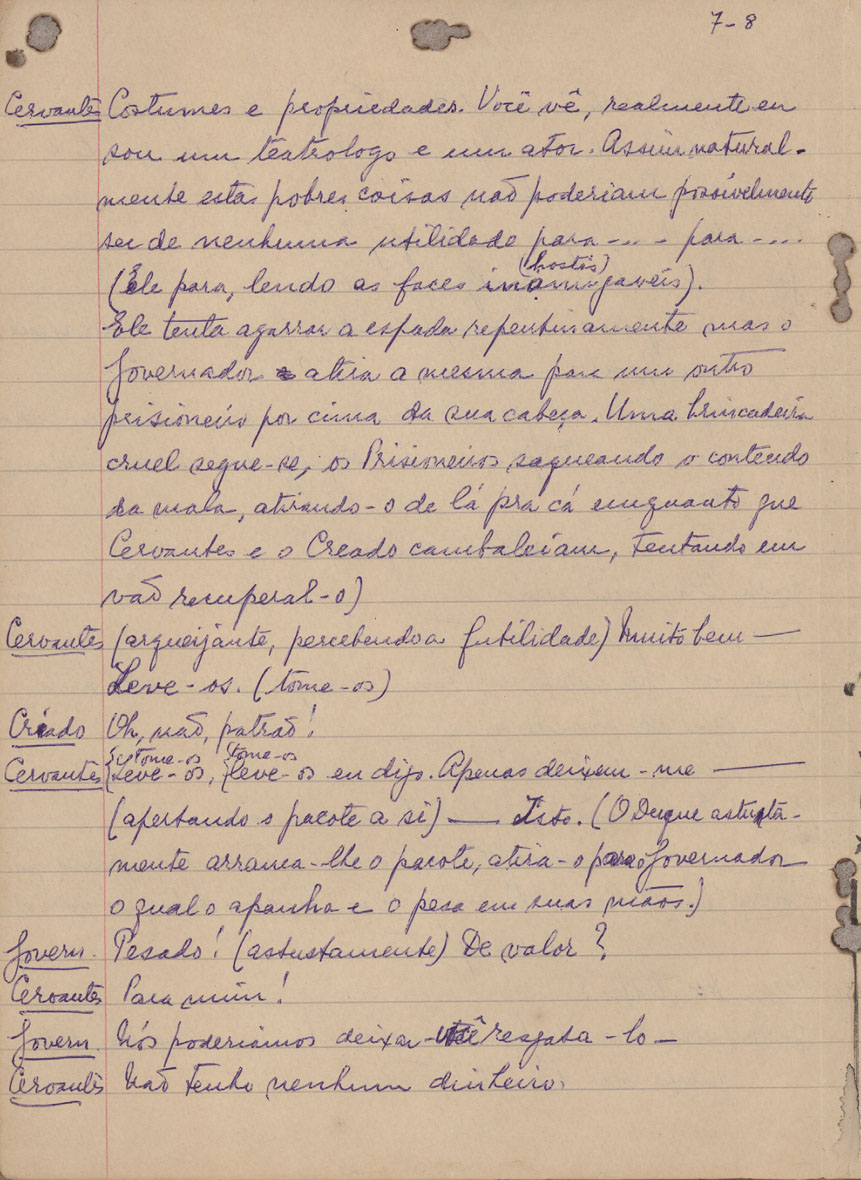 7-8
Cervantes Costumes e propriedades. Você vê, realmente eu
sou um teatrologo e um ator. Assim natural-
mente estas pobres coisas não poderiam possivelmente
ser de nenhuma utilidade para --.. - para -...
(hostis)
(Ele para, lendo as faces inamigaveis).
Ele tenta agarrar a espada repentinamente mas o
Governador atira a mesma para um outro
prisioneiro por cima da sua cabeça. Uma brincadeira
cruel segue-se, os Prisioneiros saqueando o conteudo
da mala, atirando-o de lá pra cá emquanto que
Cervantes e o Creado cambaleiam, tentando em
vão recuperal-o)
Cervantes (arqueijante, percebendo a futilidade) Muito bem —
Leve-os. (tome-os)
Criado Oh, não, patrão!
tome-os (tome-os
Cervantes Leve-os, leve-os eu digo. Apenas deixem-me —
(apertando o pacote a si) — Isto. (O Duque astuta-
mente arranca-lhe o pacote, atira-o para o Governador
o qual o apanha e o pesa em suas mãos.)
Govern. Pesado! (astustamente) De valor?
Cervantes Para mim!
Govern. Nós poderiamos deixar você resgata-lo —
Cervantes Não tenho nenhum dinheiro.